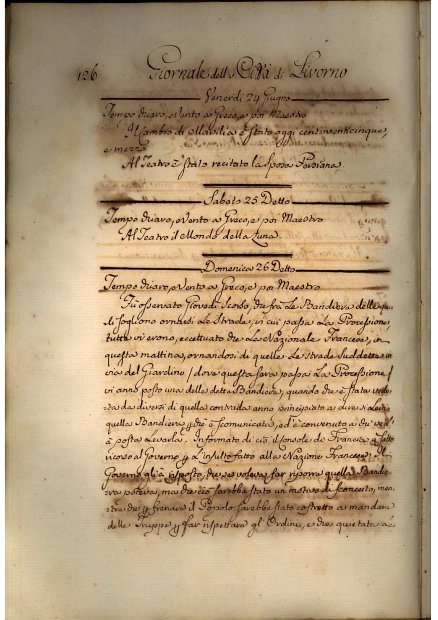 126 Giornale della Città di Livorno
Venerdi 24 Giugno
Tempo chiaro, e Vento a Greco, e poi Maestro
Il Cambio di Marsilia è stato oggi cento venticinque,
e mezzo
Al Teatro è stato recitato la Sposa Persiana
Sabato 25 Detto
Tempo chiaro, e Vento a Greco, e poi Maestro
Al Teatro il Mondo della Luna
Domenica 26 Detto
Tempo chiaro, e Vento a Greco, e poi Maestro
Fù osservato Giovedì Scorso, che frà le Bandiere delle qua-
li sogliono ornarsi le Strade, p cui passa La Processione
tutte vi erono, eccettuato che La Nazionale Francese, e
questa mattina, ornandosi di quelle le Strade Suddette in
via del Giardino / dove questa sera passa La Processione /
vi anno posto una delle dette Bandiere, quando che è stata
ta da diversi di quella contrada anno principiato a dire
quella Bandiera p che è scomunicata, ed è convenuto a chi
à posta Levarla. Informato di ciò il Console di Francia à fatto
ricorso al Governo p l'insulto fatto alla Nazione Francese. Il
Governo gli à risposto, che se voleva far riporre quella Bandi-
era poteva, ma che ciò sarebbe stato un motivo di sconcerto, men-
tre che p frenare il Popolo sarebbe stato costretto a mandare
delle Truppe p far rispettare gl' Ordini, e che quietata a